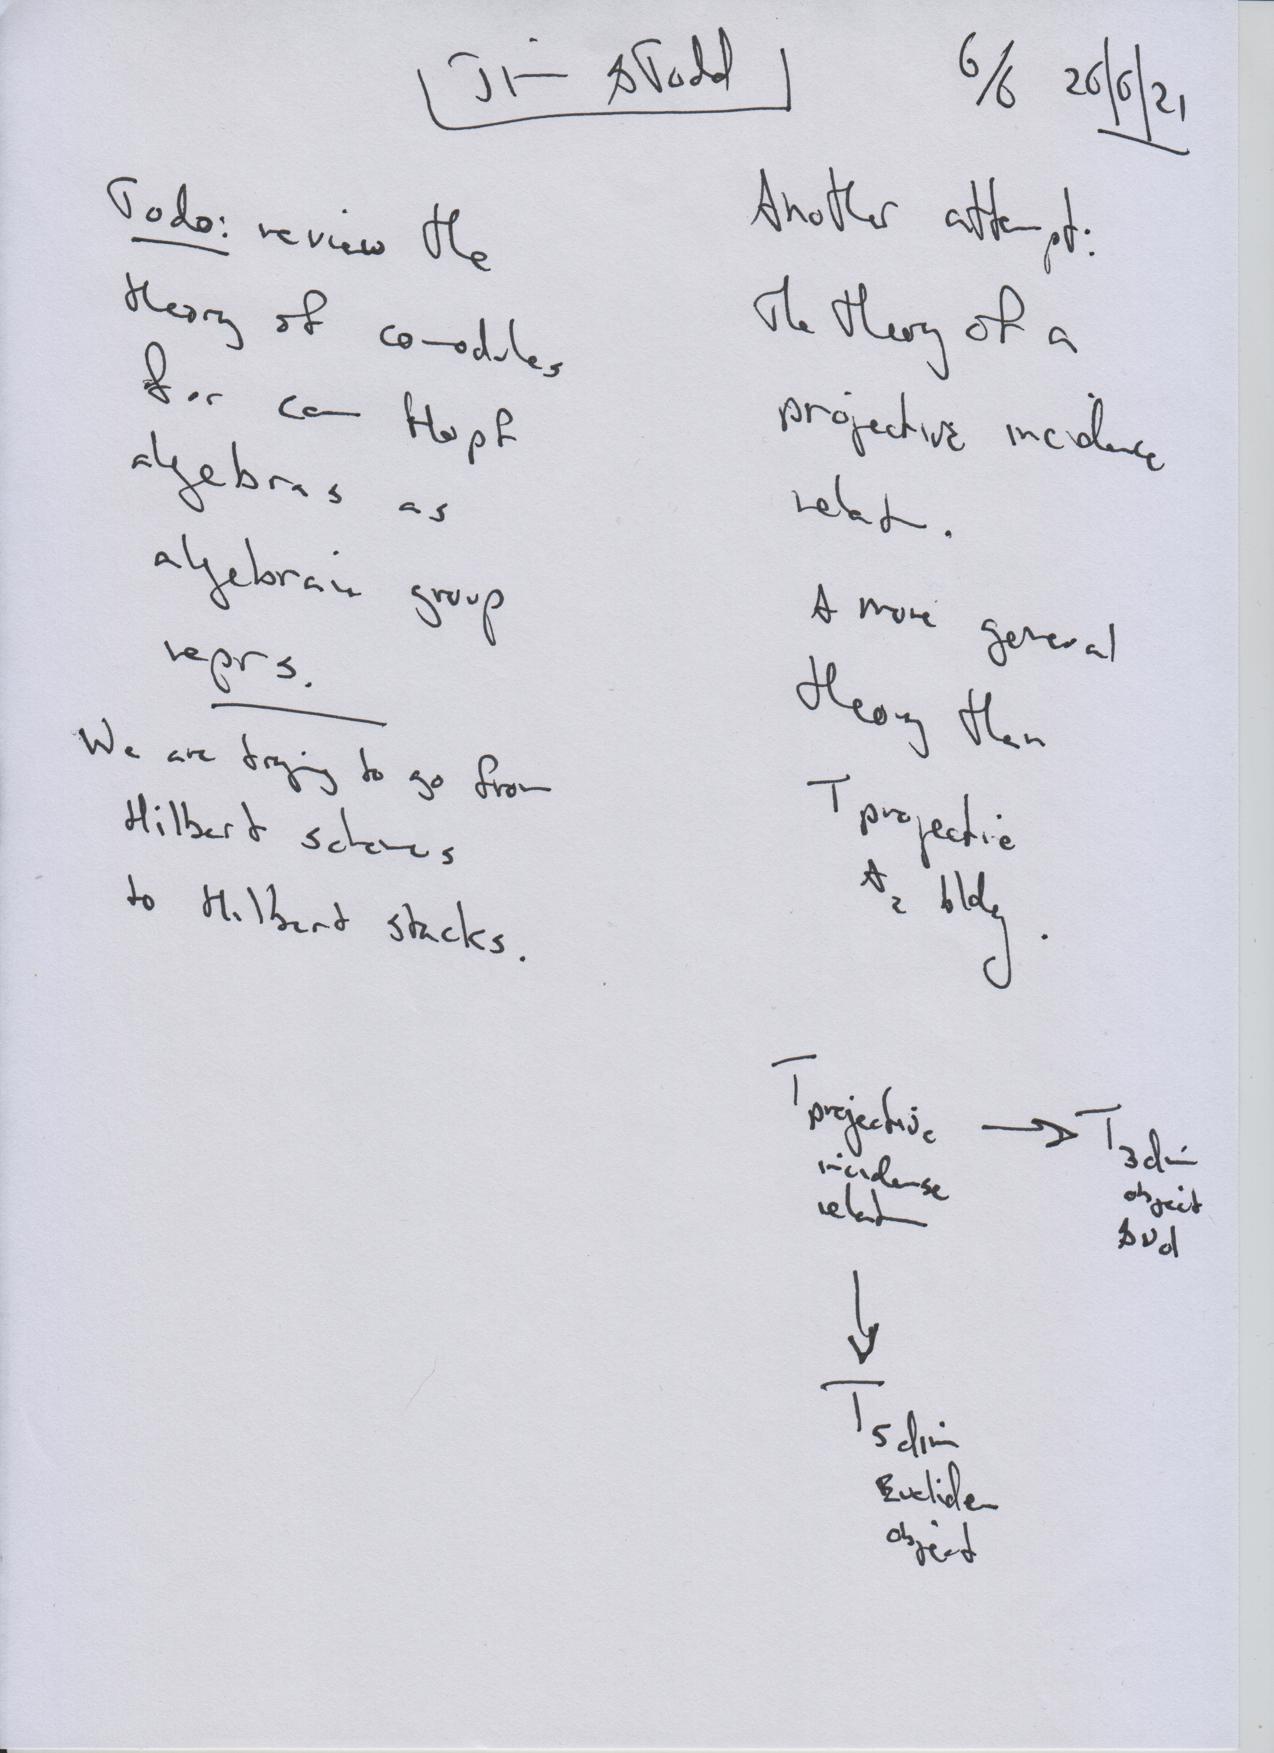 Jim & Todd
6/6 26/6/21
Todo: review the
theory of comodules
for com Hopf
algebras as
algebraic group
reprs.
We are trying to go from
Hilbert schemes
to Hilbert stacks.
Another attempt:
The theory of a
projective incidence
relatn.
A more general
theory than
T projective
A₂ bldg.
T projective → T 3dim
incidense object
relatn &vol
↓
T 5dim
Euclidean
object